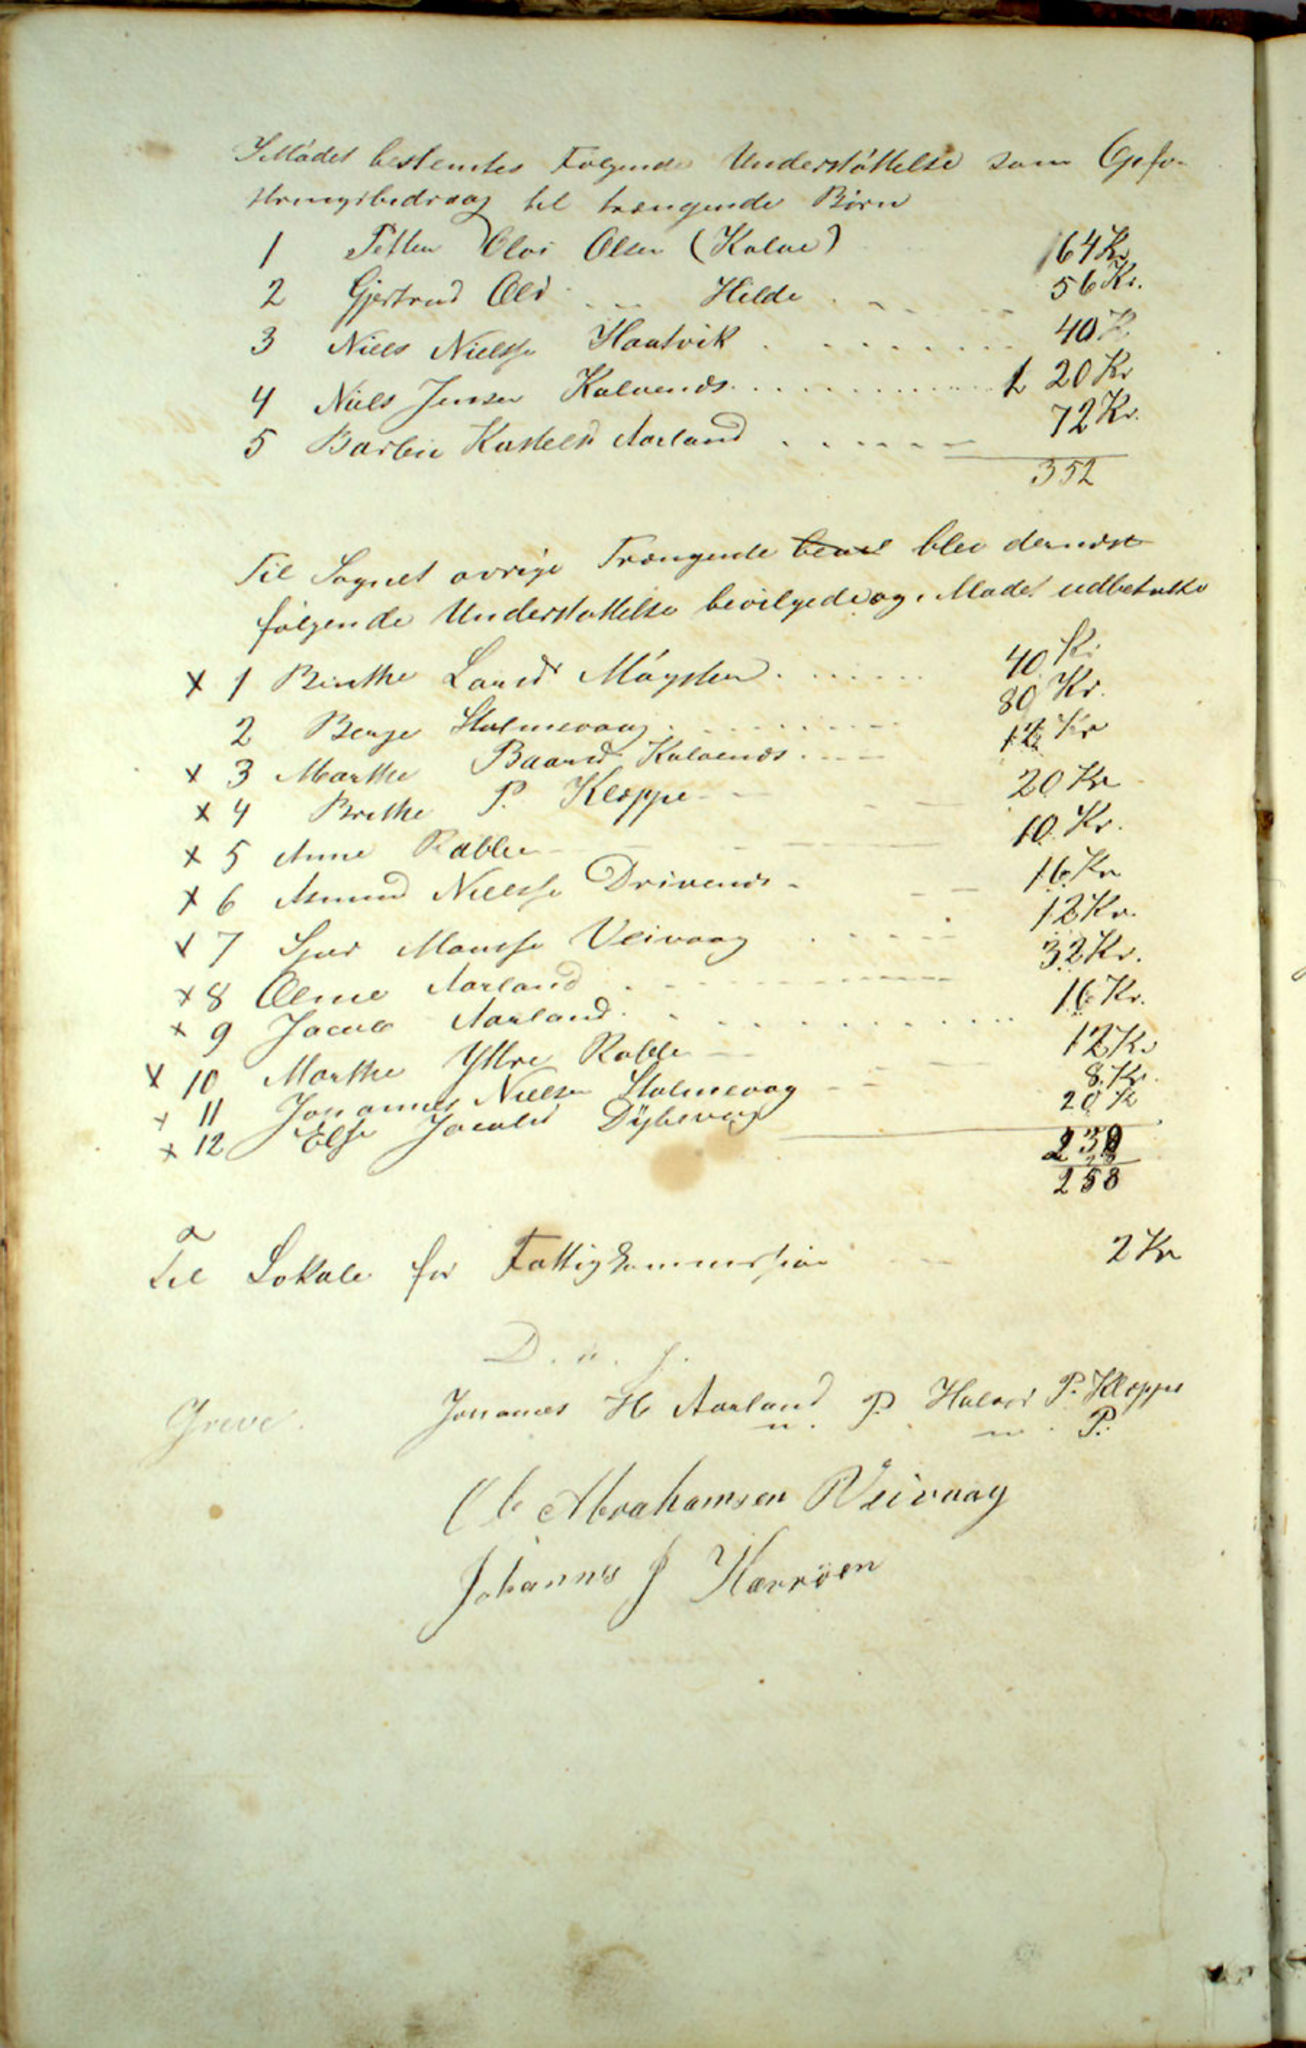 I Mödet bestemtes Følgende Understöttelse som Opfo-
stringsbidrag til trængende Börn
1 Petter Olai Olsen (Kalve) 164 Kr
2 Gjertrud Olsd Hilde 56 Kr.
3 Niels Nielss Haatvik 40 K
4 Niels Jensen Kalvenæs 1 20 Kr
5 Barbru Kastelsd Aarland 72 Kr.
352
Til Sognets øvrige Trængende blev dernæst
følgende Understøttelse bevilgede og i Mødet udbetalte
x 1 Brithe Larsd Mögster 40 Kr
2 Berge Stolmevaag 80 Kr.
x 3 Marthe Baarsd Kalvenæs 12 Kr
x 4 Brithe P. Kleppe 20 Kr
x 5 Anne Rabbe 10 Kr.
x 6 Amund Nielss Drivenæs 16 Kr
x 7 Sjur Monss Veivaag 12 Kr.
x 8 Oline Aarland 32 Kr.
x 9 Jacob Aarland 16 Kr.
x 10 Marthe Yttre Rabbe 12 Kr
x 11 Johannes Nielsen Stolmevaag 8 Kr.
x 12 Else Jacobsd Dybevaag 20 K
239
258
Til Lokale for Fattigkommission 2 Kr
D. u. s.
Greve. Johannes H Aarland P. Halvor P. Kleppe
m. P.
Ole Abrahamsen Veivaag
Johannes J Kærröen